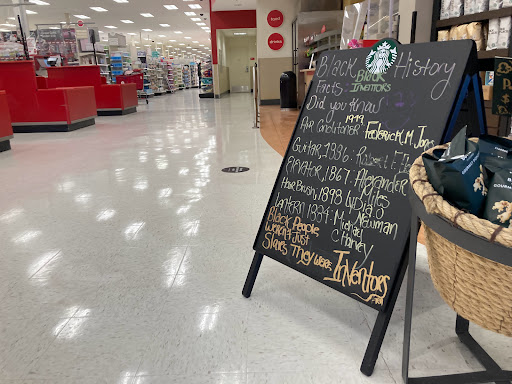 food
drinks
Black History
Facts: Black
Inventors
Did you know?
Air Conditioner 1949 Frederick M. Jones
Guitar, 1886: Robert F.
Elevator, 1867: Alexander
Miles
Hair Brush, 1898 Lyda O
Newman
Lantern 1884: Michael
C Harvey
Black People
Weren't Just
Slaves They were Inventors